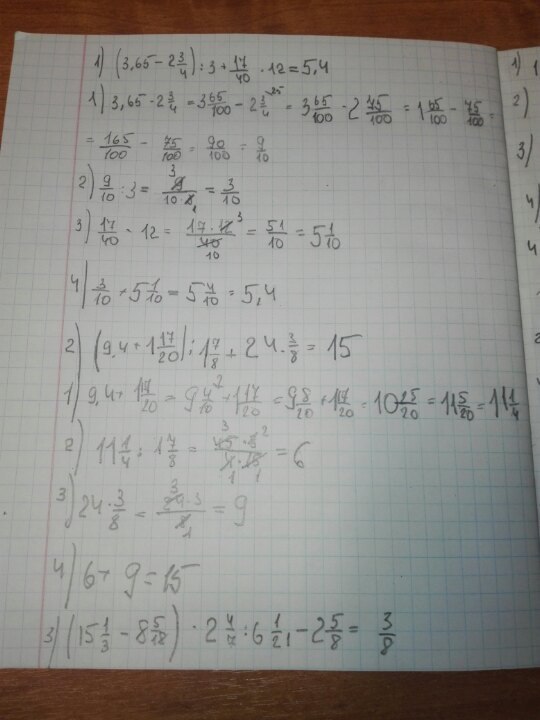 1) (3,65 - 2 3/4) : 3 + 17/40 · 12 = 5,4
1) 3,65 - 2 3/4 = 3 65/100 - 2 3/4 ²⁵ = 3 65/100 - 2 75/100 = 1 65/100 - 75/100 =
= 165/100 - 75/100 = 90/100 = 9/10
2) 9/10 : 3 = 9 3/10 · 3 1 = 3/10
3) 17/40 · 12 = 17 · 12 3/40 10 = 51/10 = 5 1/10
4) 3/10 + 5 1/10 = 5 4/10 = 5,4
2) (9,4 + 1 17/20) : 1 7/8 + 24 · 3/8 = 15
1) 9,4 + 1 17/20 = 9 4/10 ² + 1 17/20 = 9 8/20 + 1 17/20 = 10 25/20 = 11 5/20 = 11 1/4
2) 11 1/4 : 1 7/8 = 3 45 · 8 2/1 4 · 15 1 = 6
3) 24 · 3/8 = 3 24 · 3/8 1 = 9
4) 6 + 9 = 15
3) (15 1/3 - 8 5/18) · 2 4/7 : 6 1/21 - 2 5/8 = 3/8
1)
2)
3)
4)
4